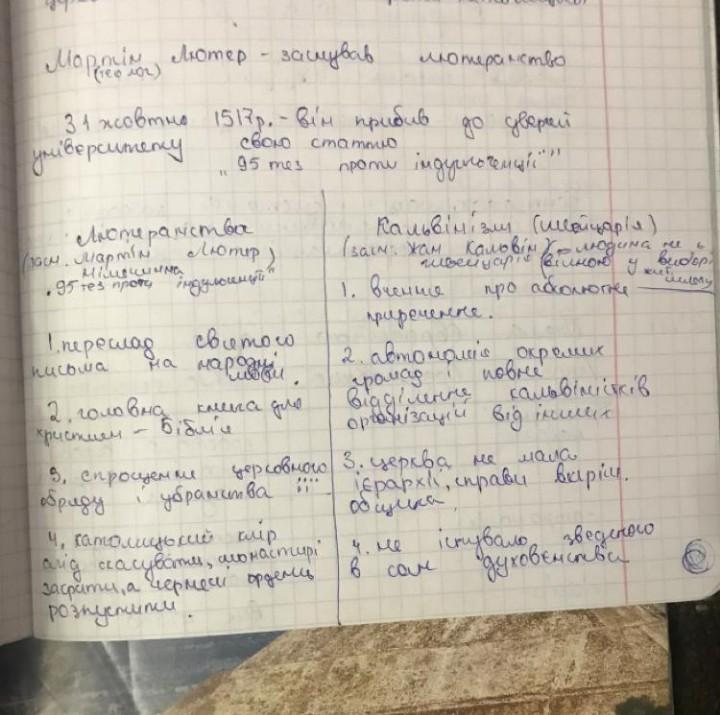 Мартін Лютер – заснував лютеранство
(теолог)
31 жовтня 1517р. – він прибив до дверей
університету свою статтю
„95 тез проти індульгенції""
Лютеранства
(засн. Мартін Лютер)
Німеччина
„95 тез проти індульгенції"
1. переклад святого
письма на народні
мови.
2. головна книга для
християн – Біблія
3. спрощення церковного
обряду і убранства її
4. католицький клір
слід скасувати, монастирі
закрити, а чернечі ордени
розпустити.
Кальвінізм (Швейцарія)
(засн. Жан Кальвін) людина не є
швейцарія вільною у виборі
1. вчення про абсолютне
приречення.
2. автономія окремих
громад і повне
відділення кальвіністків
організацій від інших
3. церква не мала
ієрархії, справи виріш.
община.
4. не існувало зведеного
в сан духовенства